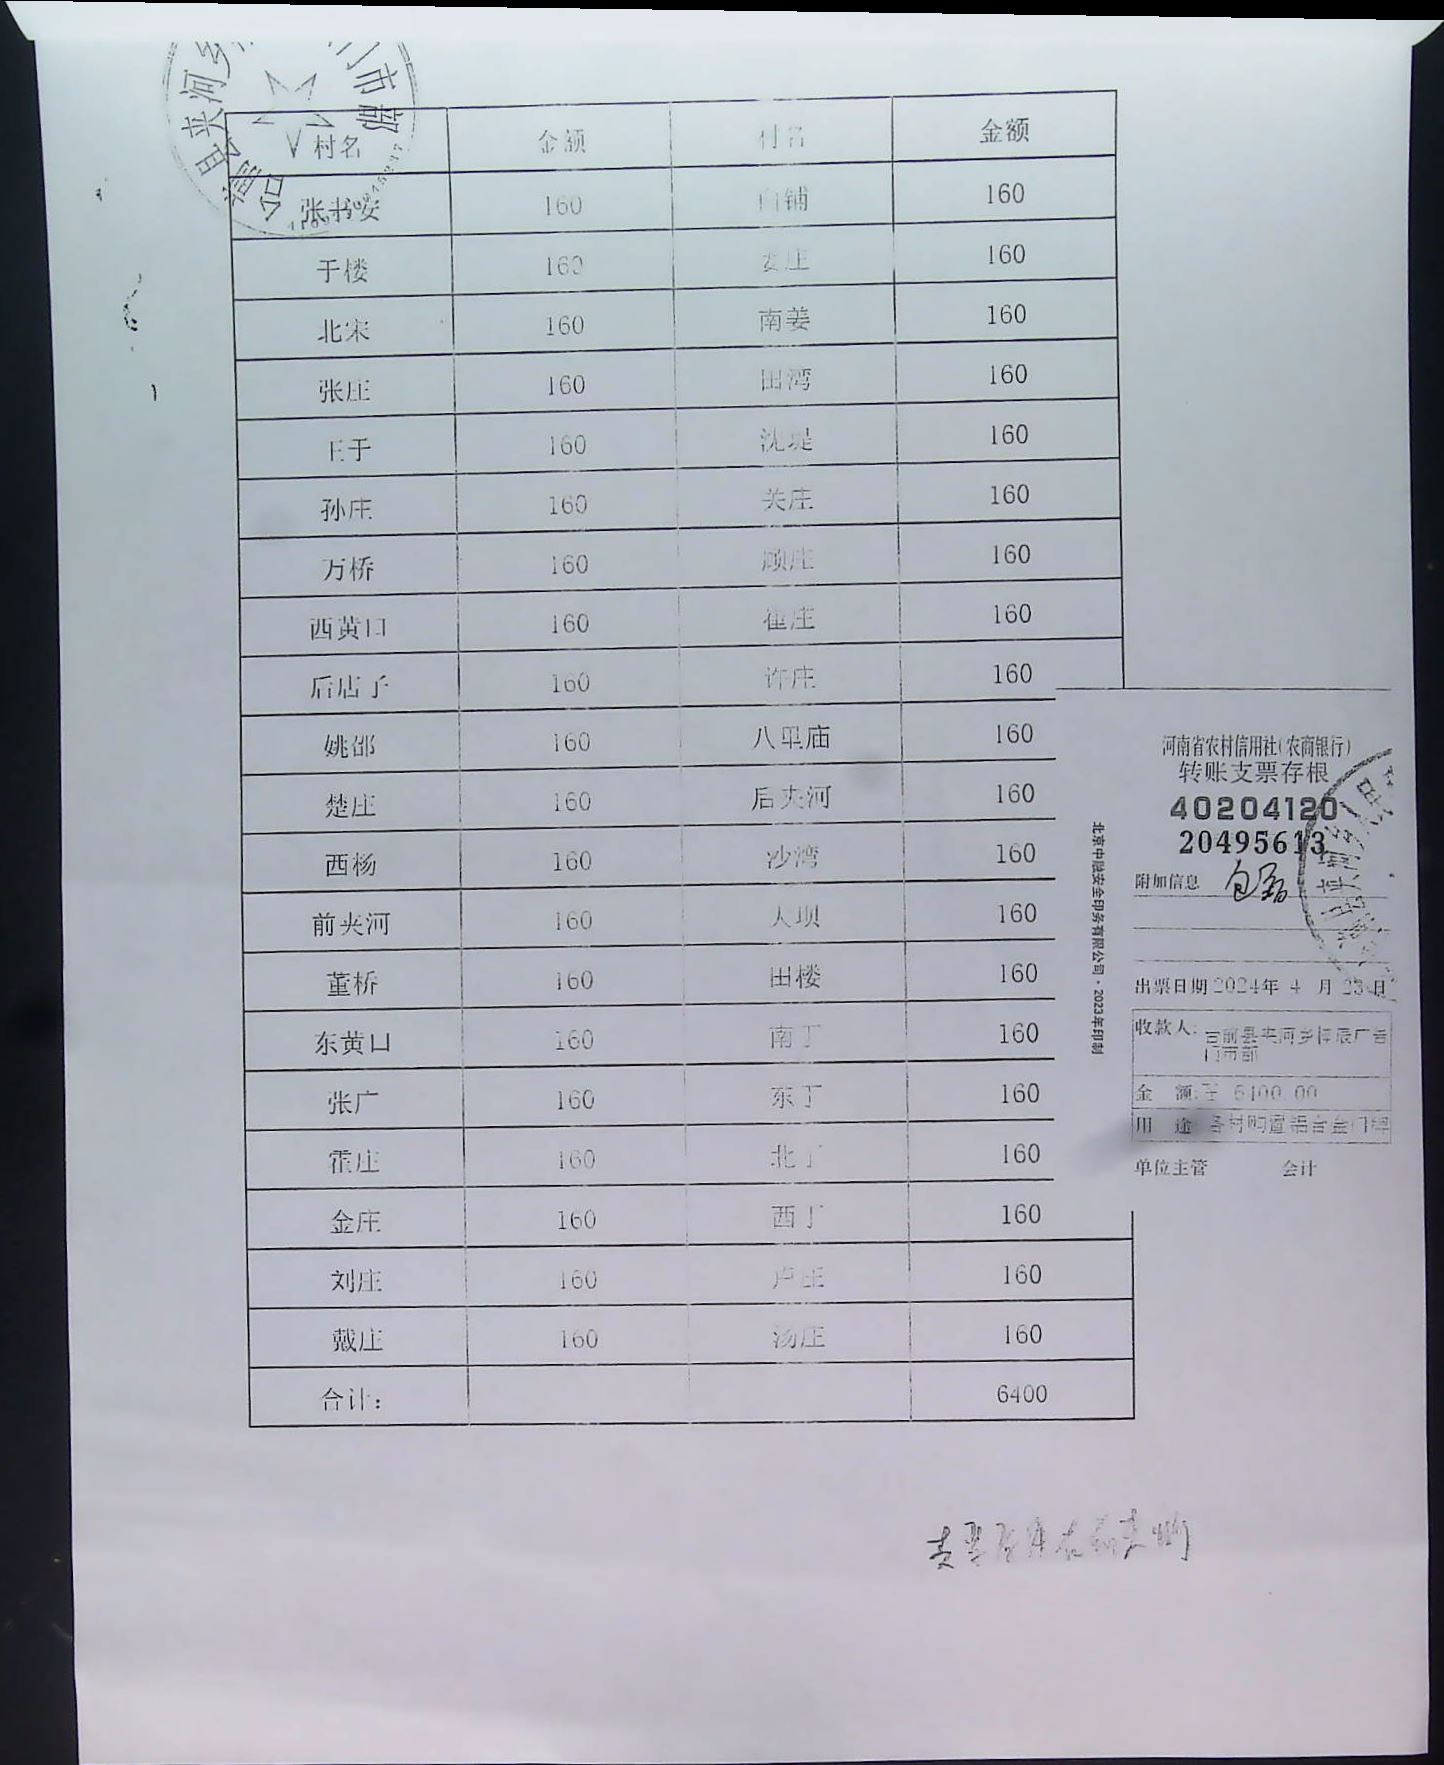 村名 金额 村名 金额
张书安 160 白铺 160
于楼 160 姜庄 160
北宋 160 南姜 160
张庄 160 田湾 160
王于 160 沈堤 160
孙庄 160 关庄 160
万桥 160 顾庄 160
西黄口 160 崔庄 160
后店子 160 许庄 160
姚邵 160 八里庙 160
楚庄 160 后夹河 160
西杨 160 沙湾 160
前夹河 160 大坝 160
董桥 160 田楼 160
东黄口 160 南丁 160
张广 160 东丁 160
霍庄 160 北丁 160
金庄 160 西丁 160
刘庄 160 卢庄 160
戴庄 160 汤庄 160
合计： 6400
河南省农村信用社(农商银行)
转账支票存根
40204120
20495613
附加信息
出票日期 2024年 4 月 23 日
收款人: 台前县夹河乡 广告
门市部
金 额: 6400.00
用 途 各村购置铝合金门牌
单位主管 会计
北京中融安全印务有限公司·2023年印制